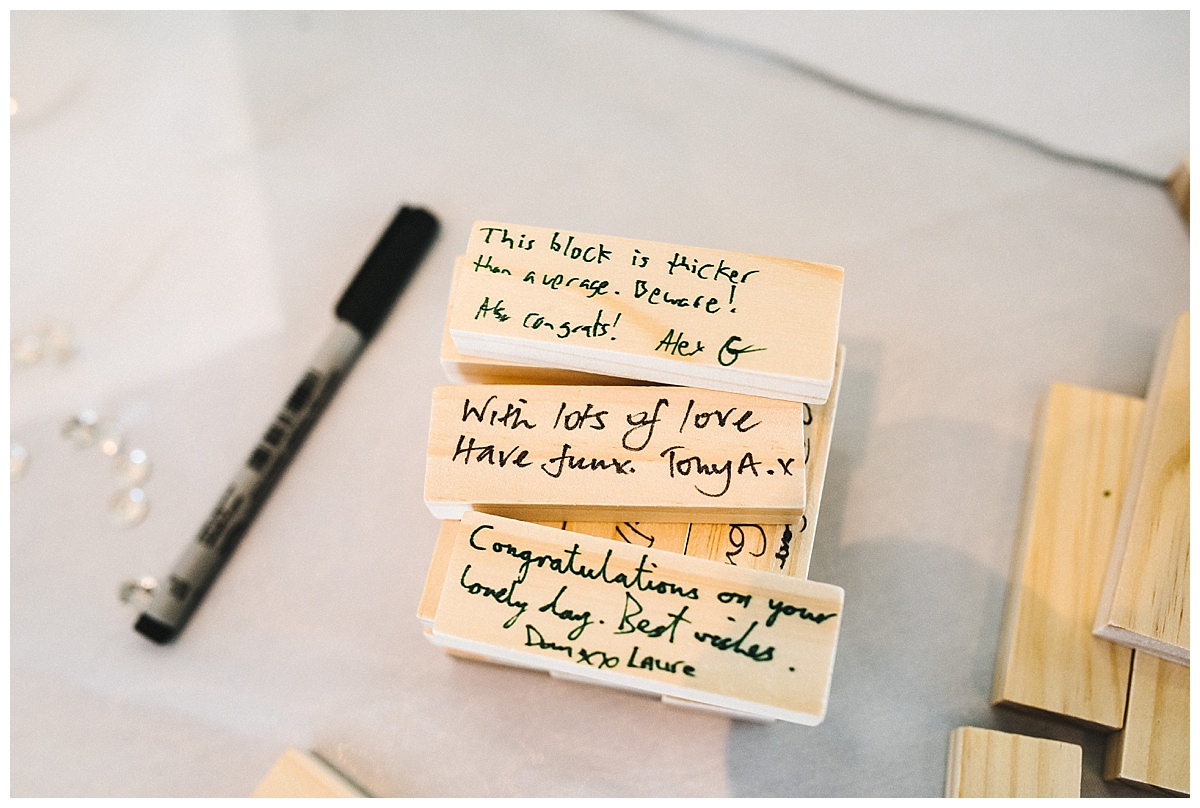 This block is thicker
than average. Beware!
Also congrats! Alex G
With lots of love
Have funx. Tony A.x
Congratulations on your
lovely day. Best wishes.
Dan xxo Laure